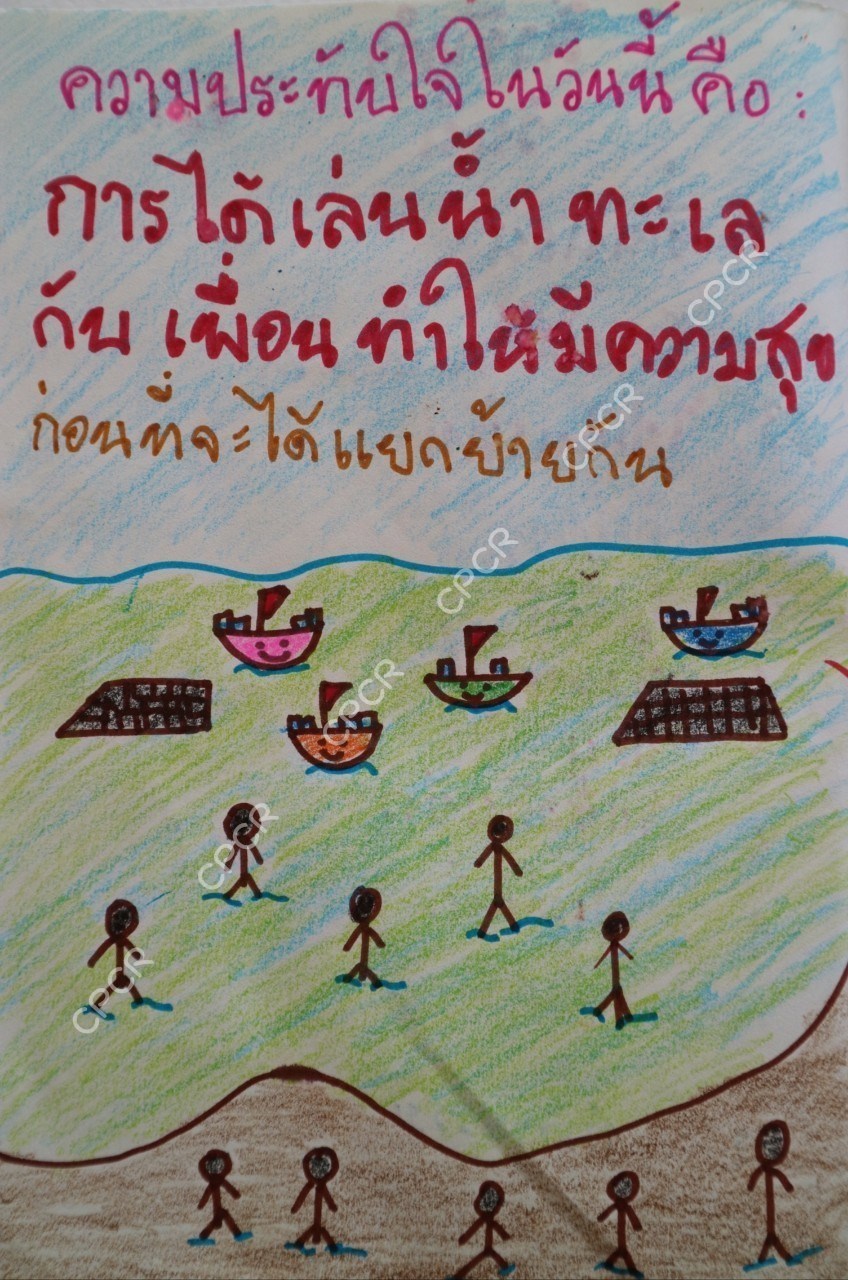 ความประทับใจในวันนี้ คือ :
การได้เล่นน้ำ ทะเล
กับ เพื่อน ทำให้มีความสุข
ก่อนที่จะได้แยกย้ายกัน
CPCR
CPCR
CPCR
CPCR
CPCR
CPCR